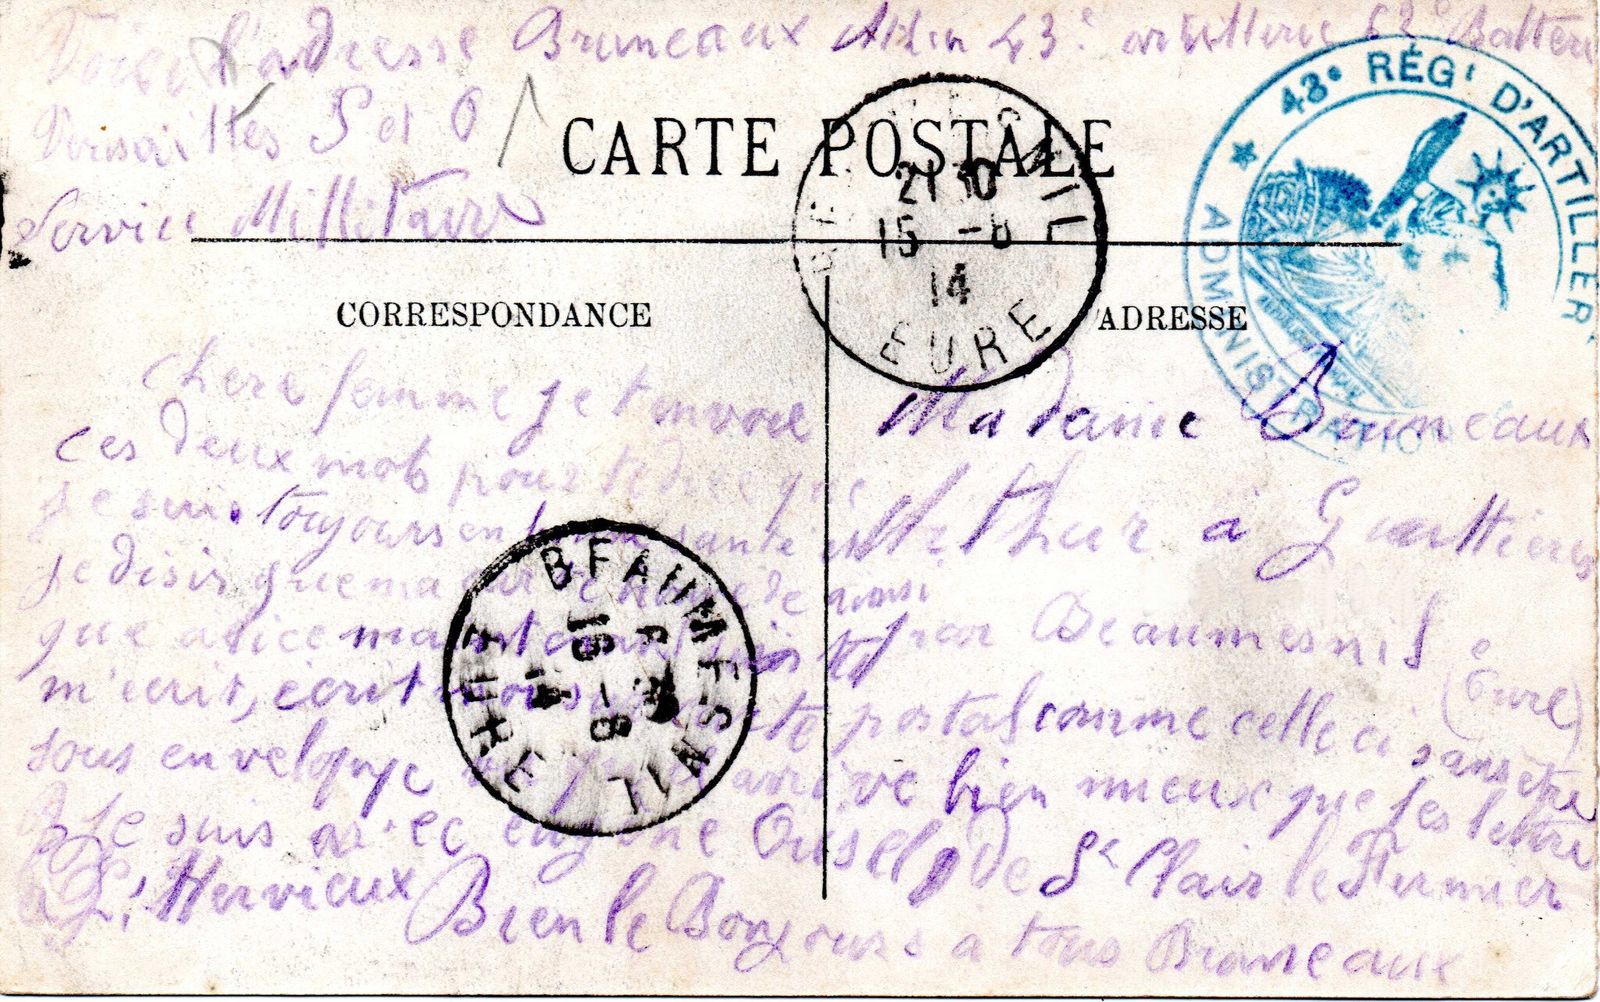 Voici l'adresse Bruneaux 43e artillerie 62e Batteri
Versailles S et O
Service Millitaire
CARTE POSTALE
43e RÉGt D'ARTILLERI
ADMINISTRATION
21 30
15 -8
14
EURE
CORRESPONDANCE
ADRESSE
Madame Bruneaux
Arthur à Gouttieres
par Beaumesnil
(Eure)
chere femme je t envoie
ces deux mots pour te dire que
je suis toujours en bonne sante et
je désir que ma carte trouve de ainsi
que alice maintenant
m'ecrit, écrit carte postal comme celle ci sans être
sous enveloppe arrive bien mieux que les lettre
Je suis avec eugene Oisel de St Clair le Fermier
a L. Hervieux Bien le Bonjours a tous Bruneaux
BEAUMESNIL
16 -8
14
EURE